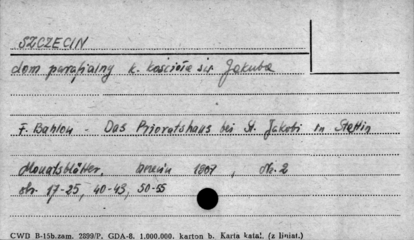 SZCZECIN
dom parafialny k. kościoła św Jakuba
F. Bahlow - Das Prioratshaus bei St. Jakobi in Stettin
Monatsblätter, 1907, Nr. 2
str. 17-25, 40-43, 50-55
CWD B-15b.zam. 2399/P. GDA-8. 1.000.000. karton b. Karta katal. (z liniat.)